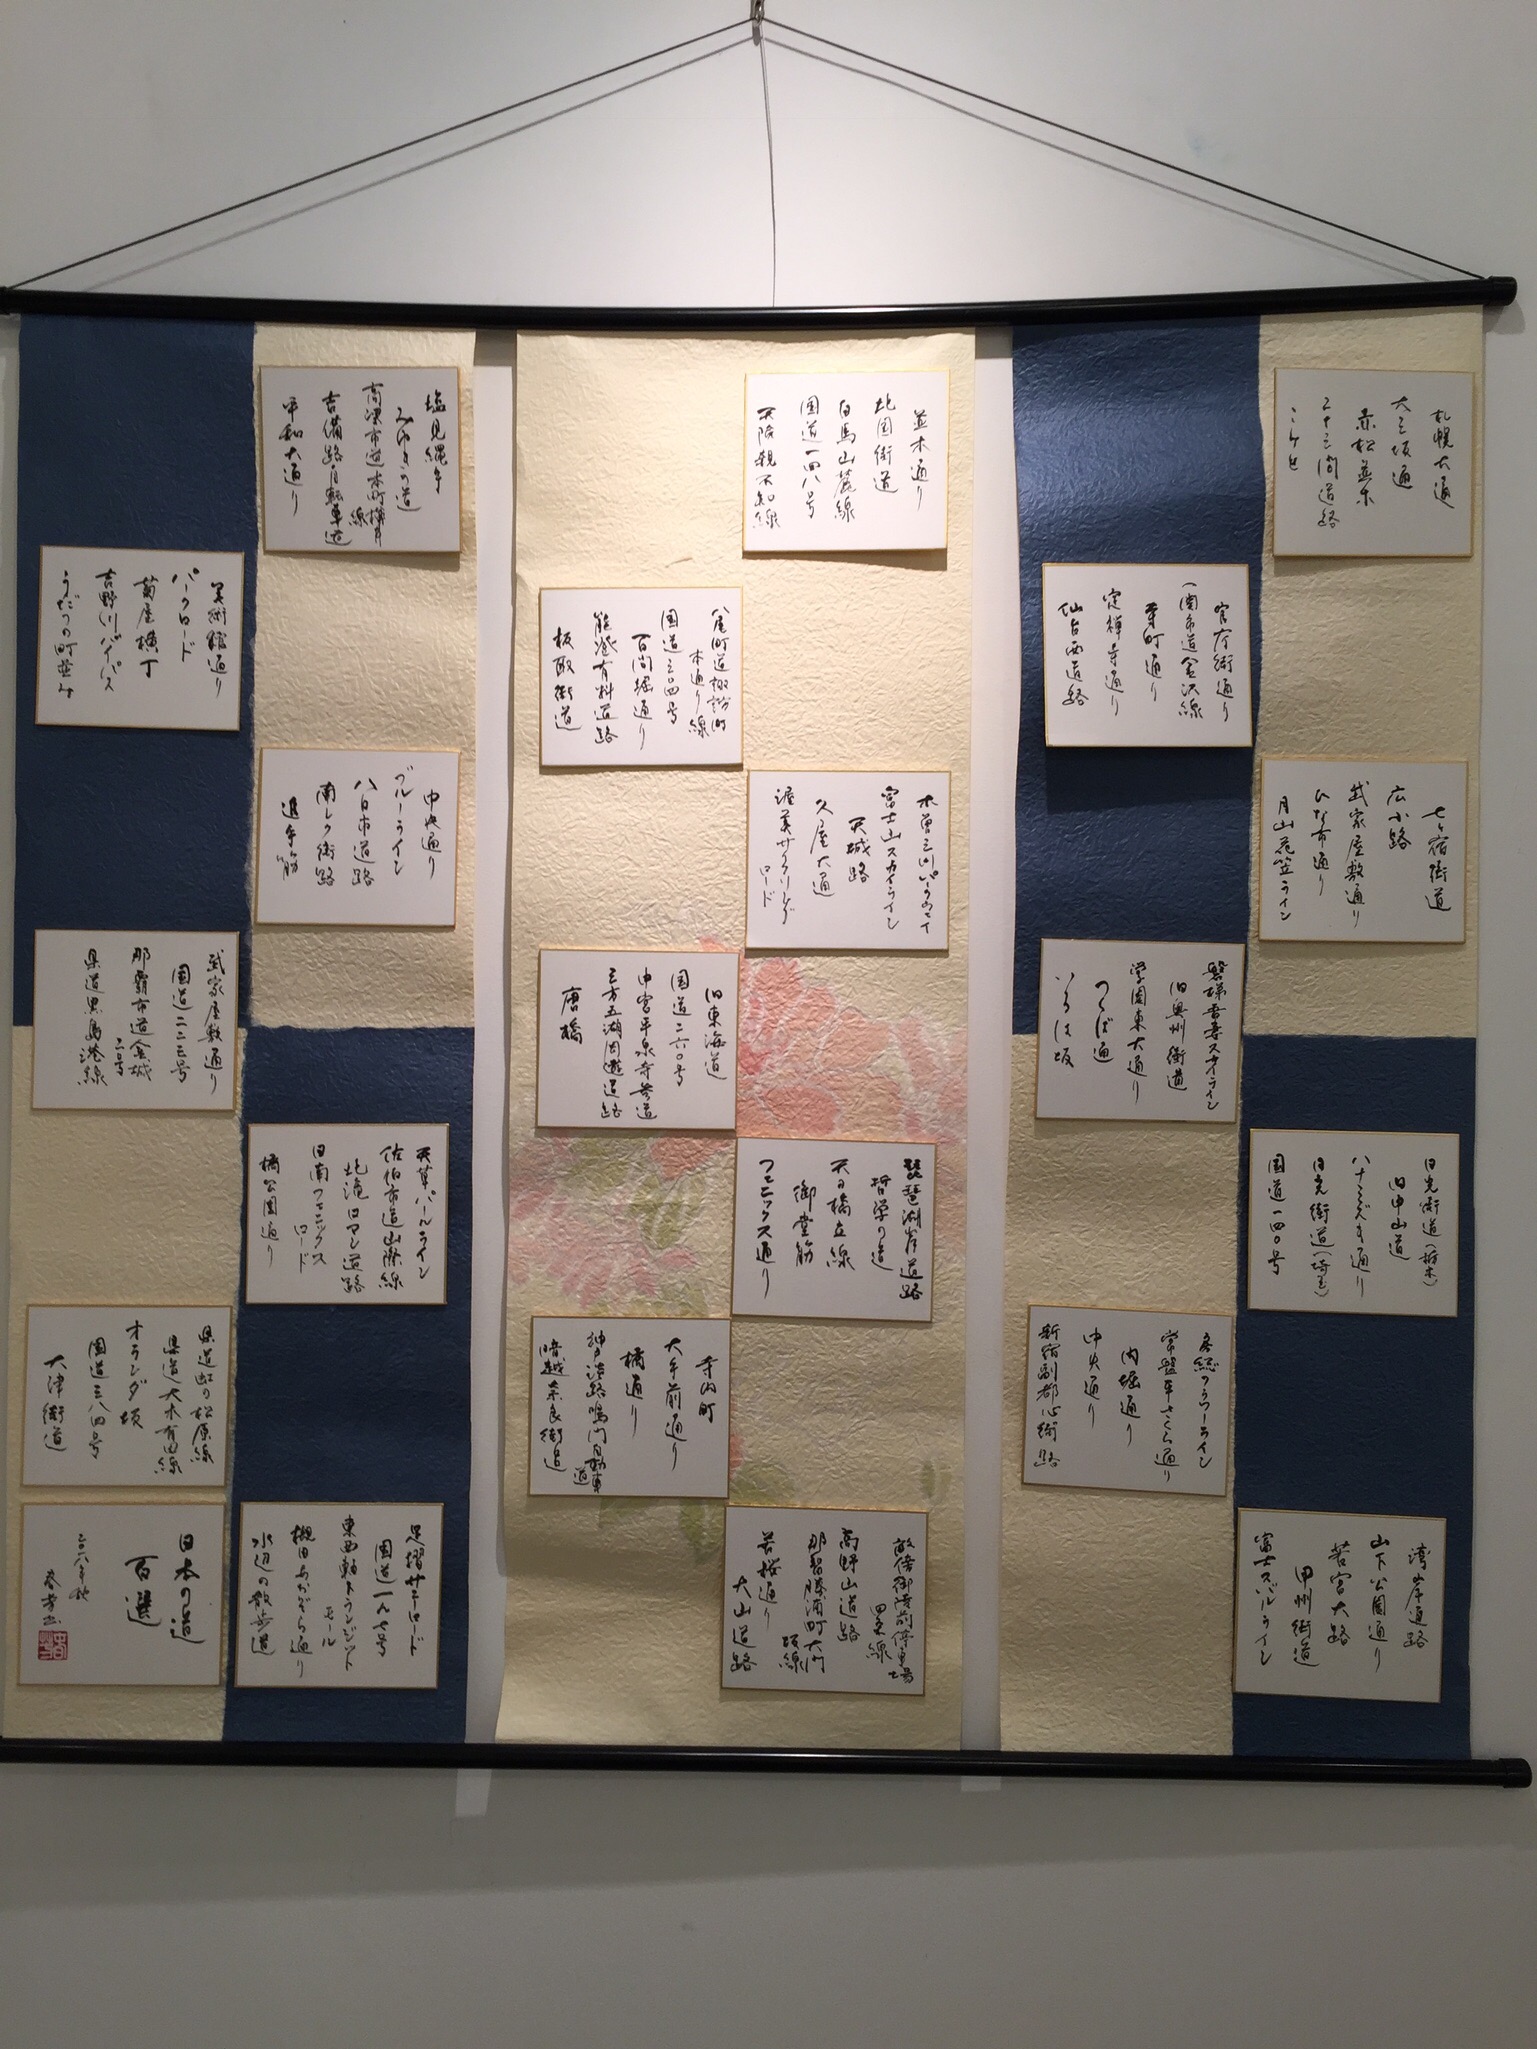 札幌大通
大三坂通
赤松並木
二十三間道路
こみせ
官庁街通り
一関市道金沢線
寺町通り
定禅寺通り
仙台西道路
七ヶ宿街道
広小路
武家屋敷通り
ひな市通り
月山花笠ライン
磐梯吾妻スカイライン
旧奥州街道
学園東大通り
つくば通
いろは坂
日光街道(栃木)
旧中山道
八十三ズ木通り
日光街道(埼玉)
国道一四〇号
房総フラワーライン
常盤平さくら通り
内堀通り
中央通り
新宿副都心街路
湾岸道路
山下公園通り
若宮大路
甲州街道
富士スバルライン
並木通り
北国街道
白馬山麓線
国道一四八号
天険親不知線
八尾町道諏訪町
本通り線
国道三〇四号
百間堀通り
能登有料道路
板取街道
木曽三川パークウェイ
富士山スカイライン
天城路
久屋大通
渥美サイクリング
ロード
旧東海道
国道二六〇号
中宮平泉寺参道
三方五湖周遊道路
唐橋
琵琶湖岸道路
哲学の道
天の橋立線
御堂筋
フェニックス通り
寺内町
大手前通り
橘通り
神戸淡路鳴門自動車
道
暗越奈良街道
畝傍御陵前停車場
四条線
高野山道路
那智勝浦町大門
坂線
若桜通り
大山道路
塩見縄手
みゆきの道
高梁市道本町横井
線
吉備路自転車道
平和大通り
美術館通り
パークロード
菊屋横丁
吉野川バイパス
うだつの町並み
中央通り
ブルーライン
八日市道路
南レク街路
追手筋
武家屋敷通り
国道二二三号
那覇市道金城
二〇号
県道黒島港線
天草パールライン
佐伯市道山際線
北滝ロマン道路
日南フェニックス
ロード
橘公園通り
県道虹の松原線
県道大木有田線
オランダ坂
国道三八四号
大津街道
足摺サニーロード
国道一九七号
東西軸トランジット
モール
槻田あかぞら通り
水辺の散歩道
日本の道
百選